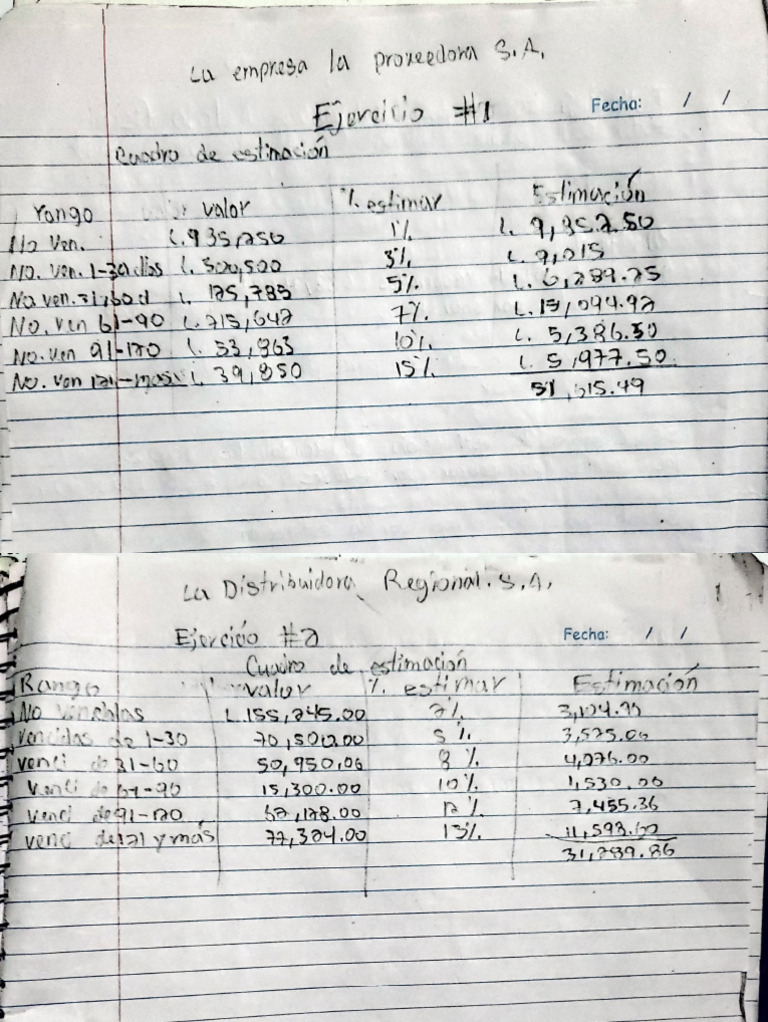 La empresa la proveedora S.A.
Ejercicio #1
Fecha: / /
Cuadro de estimación
rango valor % estimar Estimación
No Ven. L. 935,250 1% L. 9,352.50
No. Ven. 1-30 dias L. 300,500 3% L. 9,015
No ven. 31,60 d L. 125,785 5% L. 6,289.25
No. Ven 61-90 L. 215,642 7% L. 15,094.92
No. Ven 91-120 L. 53,863 10% L. 5,386.30
No. Ven 121-mas L. 39,850 15% L. 5,977.50
51,115.49
La Distribuidora Regional. S.A.
Ejercicio #2
Fecha: / /
Cuadro de estimación
Rango valor % estimar Estimación
No L. 155,245.00 2%
Vencidas de 1-30 70,500.00 5% 3,525.00
venci de 31-60 50,950.00 8% 4,076.00
venci de 61-90 15,300.00 10% 1,530.00
venci de 91-120 62,128.00 12% 7,455.36
venci de 121 y más 77,324.00 15%